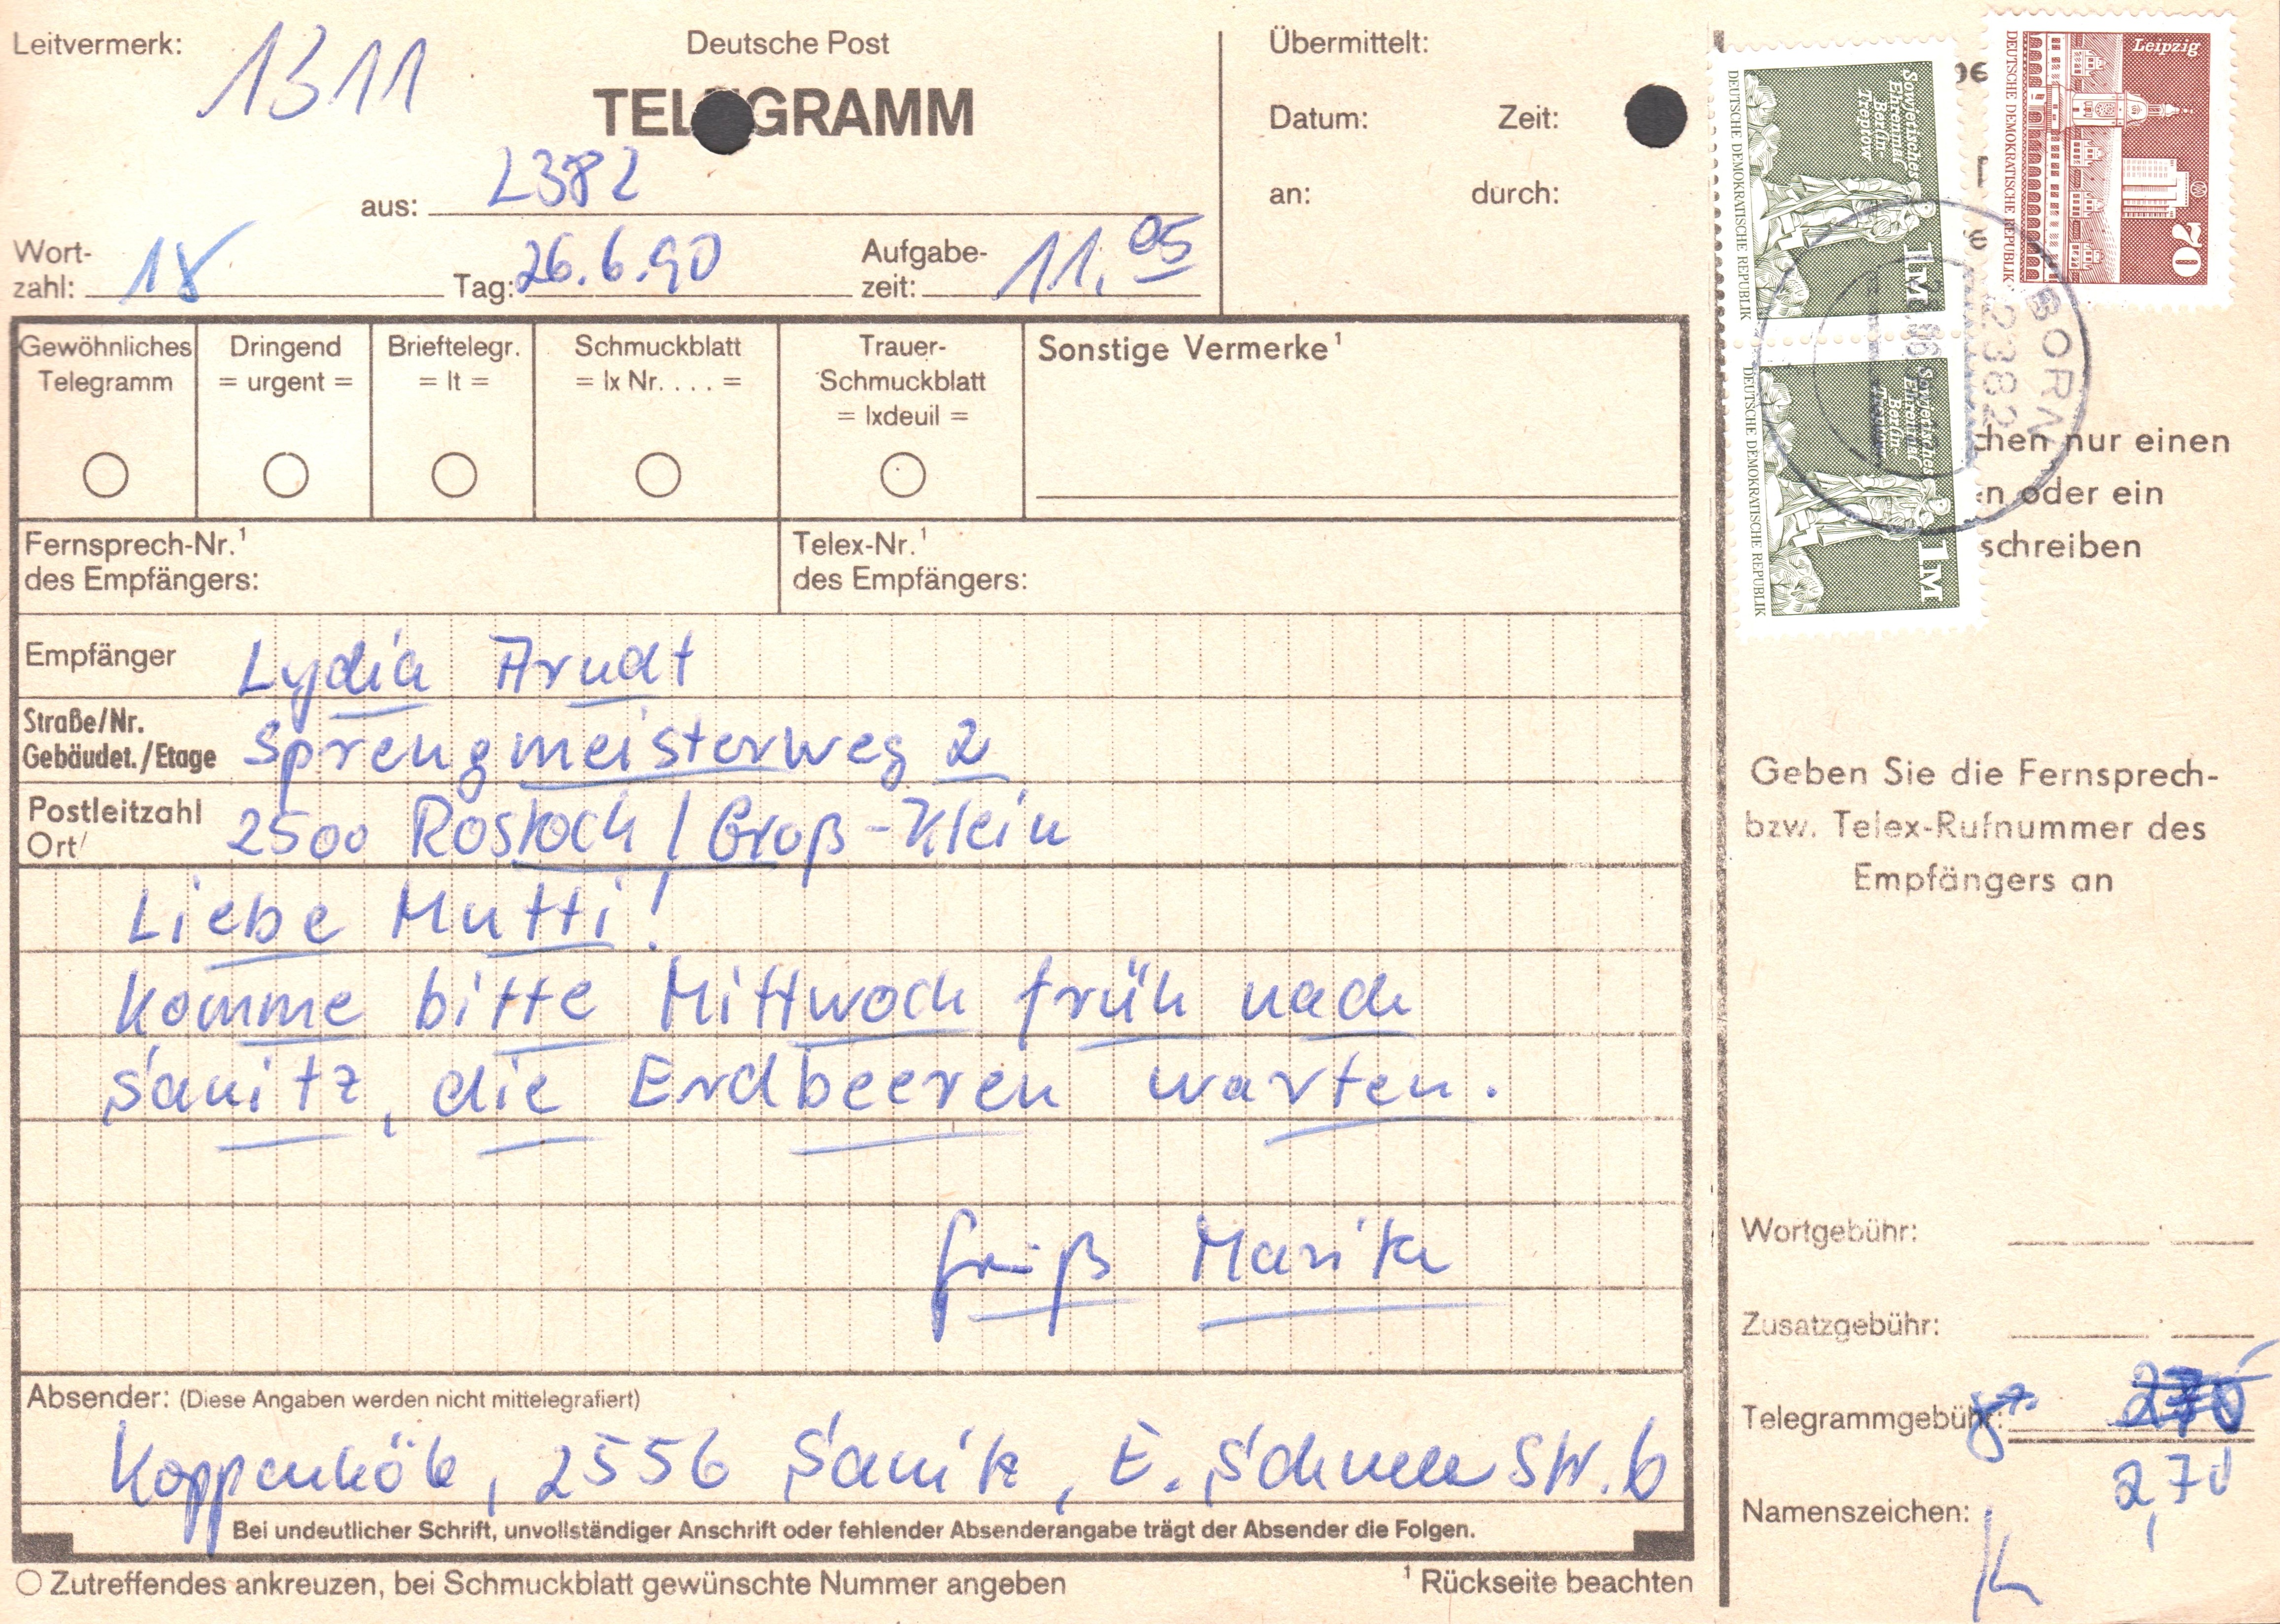 Leitvermerk: 1311
Deutsche Post
TELEGRAMM
aus: 2382
Wort-
zahl: 18
Tag: 26.6.90
Aufgabe-
zeit: 11.05
Übermittelt:
Datum: Zeit:
an: durch:
Gewöhnliches
Telegramm
Dringend
= urgent =
Brieftelegr.
= lt =
Schmuckblatt
= lx Nr. . . . =
Trauer-
Schmuckblatt
= lxdeuil =
Sonstige Vermerke¹
Fernsprech-Nr.¹
des Empfängers:
Telex-Nr.¹
des Empfängers:
Empfänger Lydia Arndt
Straße/Nr.
Gebäudet./Etage Sprengmeisterweg 2
Postleitzahl
Ort 2500 Rostock / Groß-Klein
Liebe Mutti!
Komme bitte Mittwoch früh nach
Sanitz, die Erdbeeren warten.
Gruß Marika
Absender: (Diese Angaben werden nicht mittelegrafiert)
2556 Sanitz, E. Str. 6
Bei undeutlicher Schrift, unvollständiger Anschrift oder fehlender Absenderangabe trägt der Absender die Folgen.
Zutreffendes ankreuzen, bei Schmuckblatt gewünschte Nummer angeben
¹ Rückseite beachten
Sowjetisches
Ehrenmal
Berlin-
Treptow
1M
DEUTSCHE DEMOKRATISCHE REPUBLIK
Sowjetisches
Ehrenmal
Berlin-
Treptow
1M
DEUTSCHE DEMOKRATISCHE REPUBLIK
Leipzig
70
DEUTSCHE DEMOKRATISCHE REPUBLIK
BORN
2382
chen nur einen
n oder ein
schreiben
Geben Sie die Fernsprech-
bzw. Telex-Rufnummer des
Empfängers an
Wortgebühr:
Zusatzgebühr:
Telegrammgebühr:
2,70
Namenszeichen: